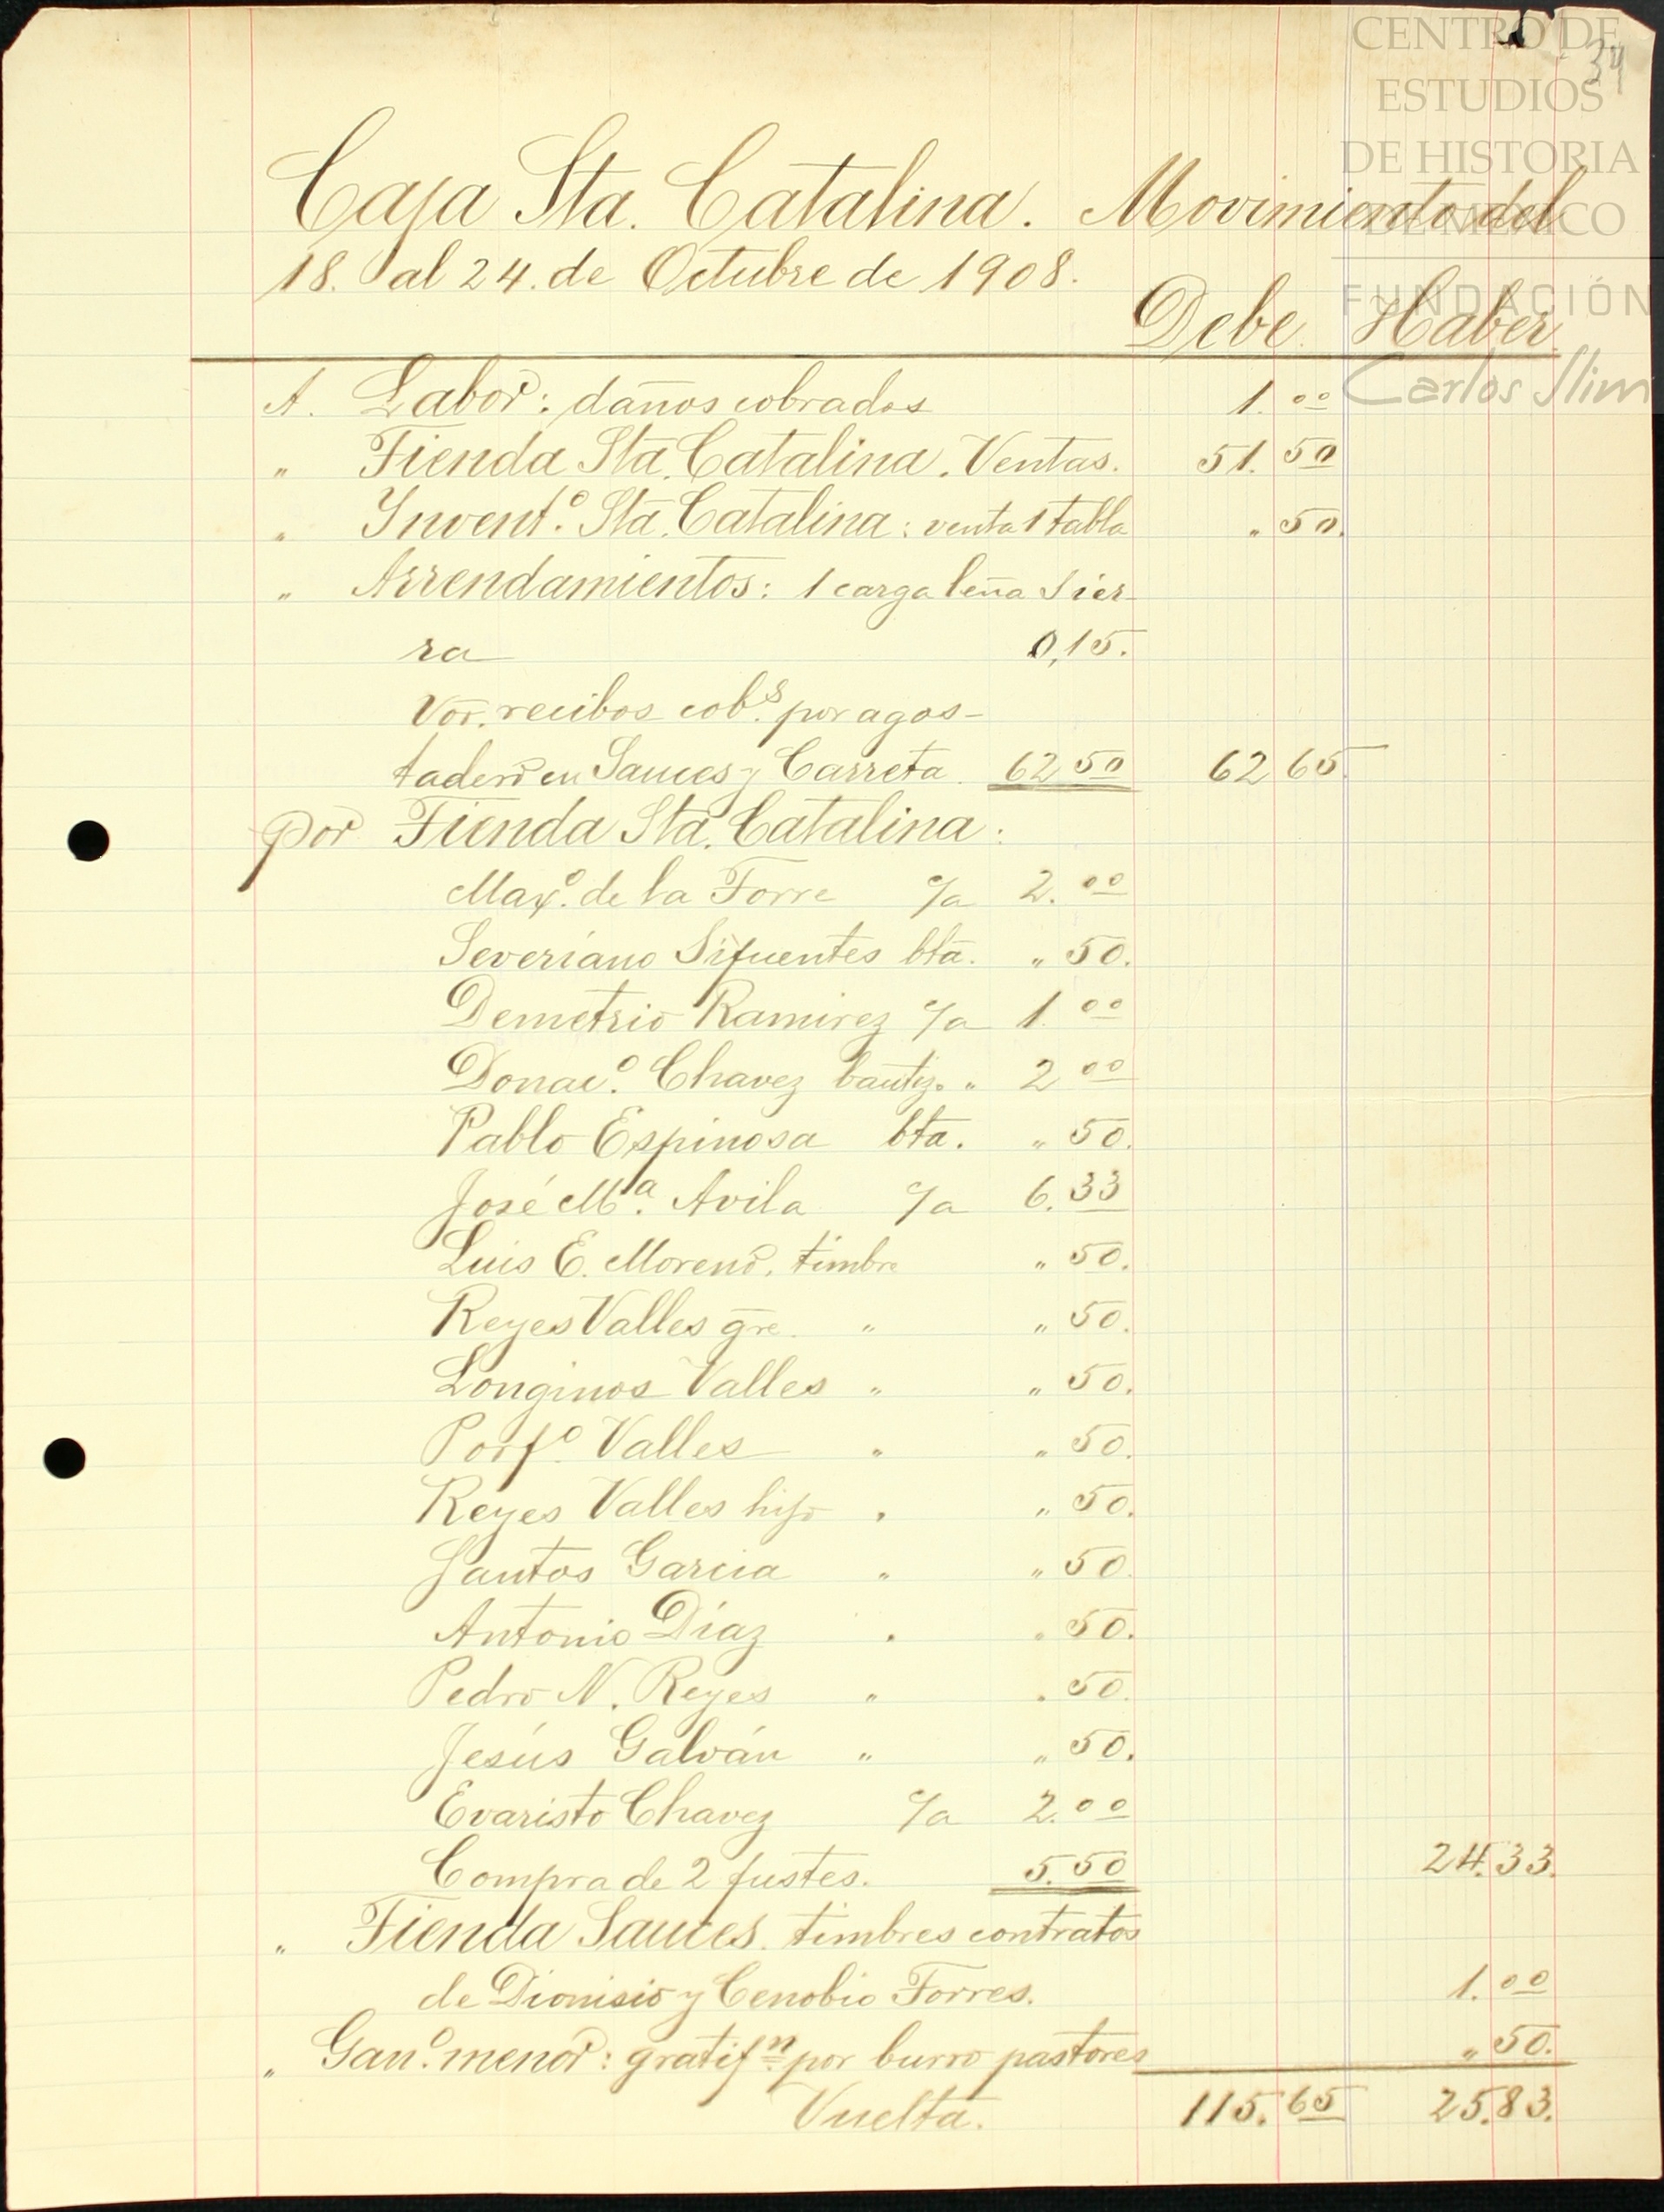 CENTRO DE
ESTUDIOS
DE HISTORIA
DE MÉXICO
FUNDACIÓN
Carlos Slim
34
Caja Sta. Catalina. Movimiento del
18. al 24. de Octubre de 1908.
Debe. Haber.
A. Labor: daños cobrados 1.00
" Tienda Sta. Catalina. Ventas. 51.50
" Ynvent.o Sta. Catalina: venta 1 tabla " 50.
" Arrendamientos: 1 carga leña Sier-
ra 0,15.
Vor. recibos cob.s por agos-
tadero en Sauces y Carreta. 62 50 62 65.
Por Tienda Sta. Catalina:
Max.o de la Torre c/a 2.00
Severiano Sifuentes bta. " 50.
Demetrio Ramirez c/a 1.00
Donac.o Chavez bautizo " 2 00
Pablo Espinosa bta. " 50.
José M.a Avila c/a 6.33
Luis E. Moreno, timbre " 50.
Reyes Valles gre. " " 50.
Longinos Valles " " 50.
Porf.o Valles " " 50.
Reyes Valles hijo " " 50.
Santos Garcia " " 50.
Antonio Díaz " " 50.
Pedro N. Reyes " " 50.
Jesús Galván " " 50.
Evaristo Chavez c/a 2.00
Compra de 2 fustes. 5.50 24.33.
" Tienda Sauces. timbres contratos
de Dionisio y Cenobio Torres. 1.00
" Gan.o menor: gratif.n por burro pastores " 50.
Vuelta. 115.65 25.83.